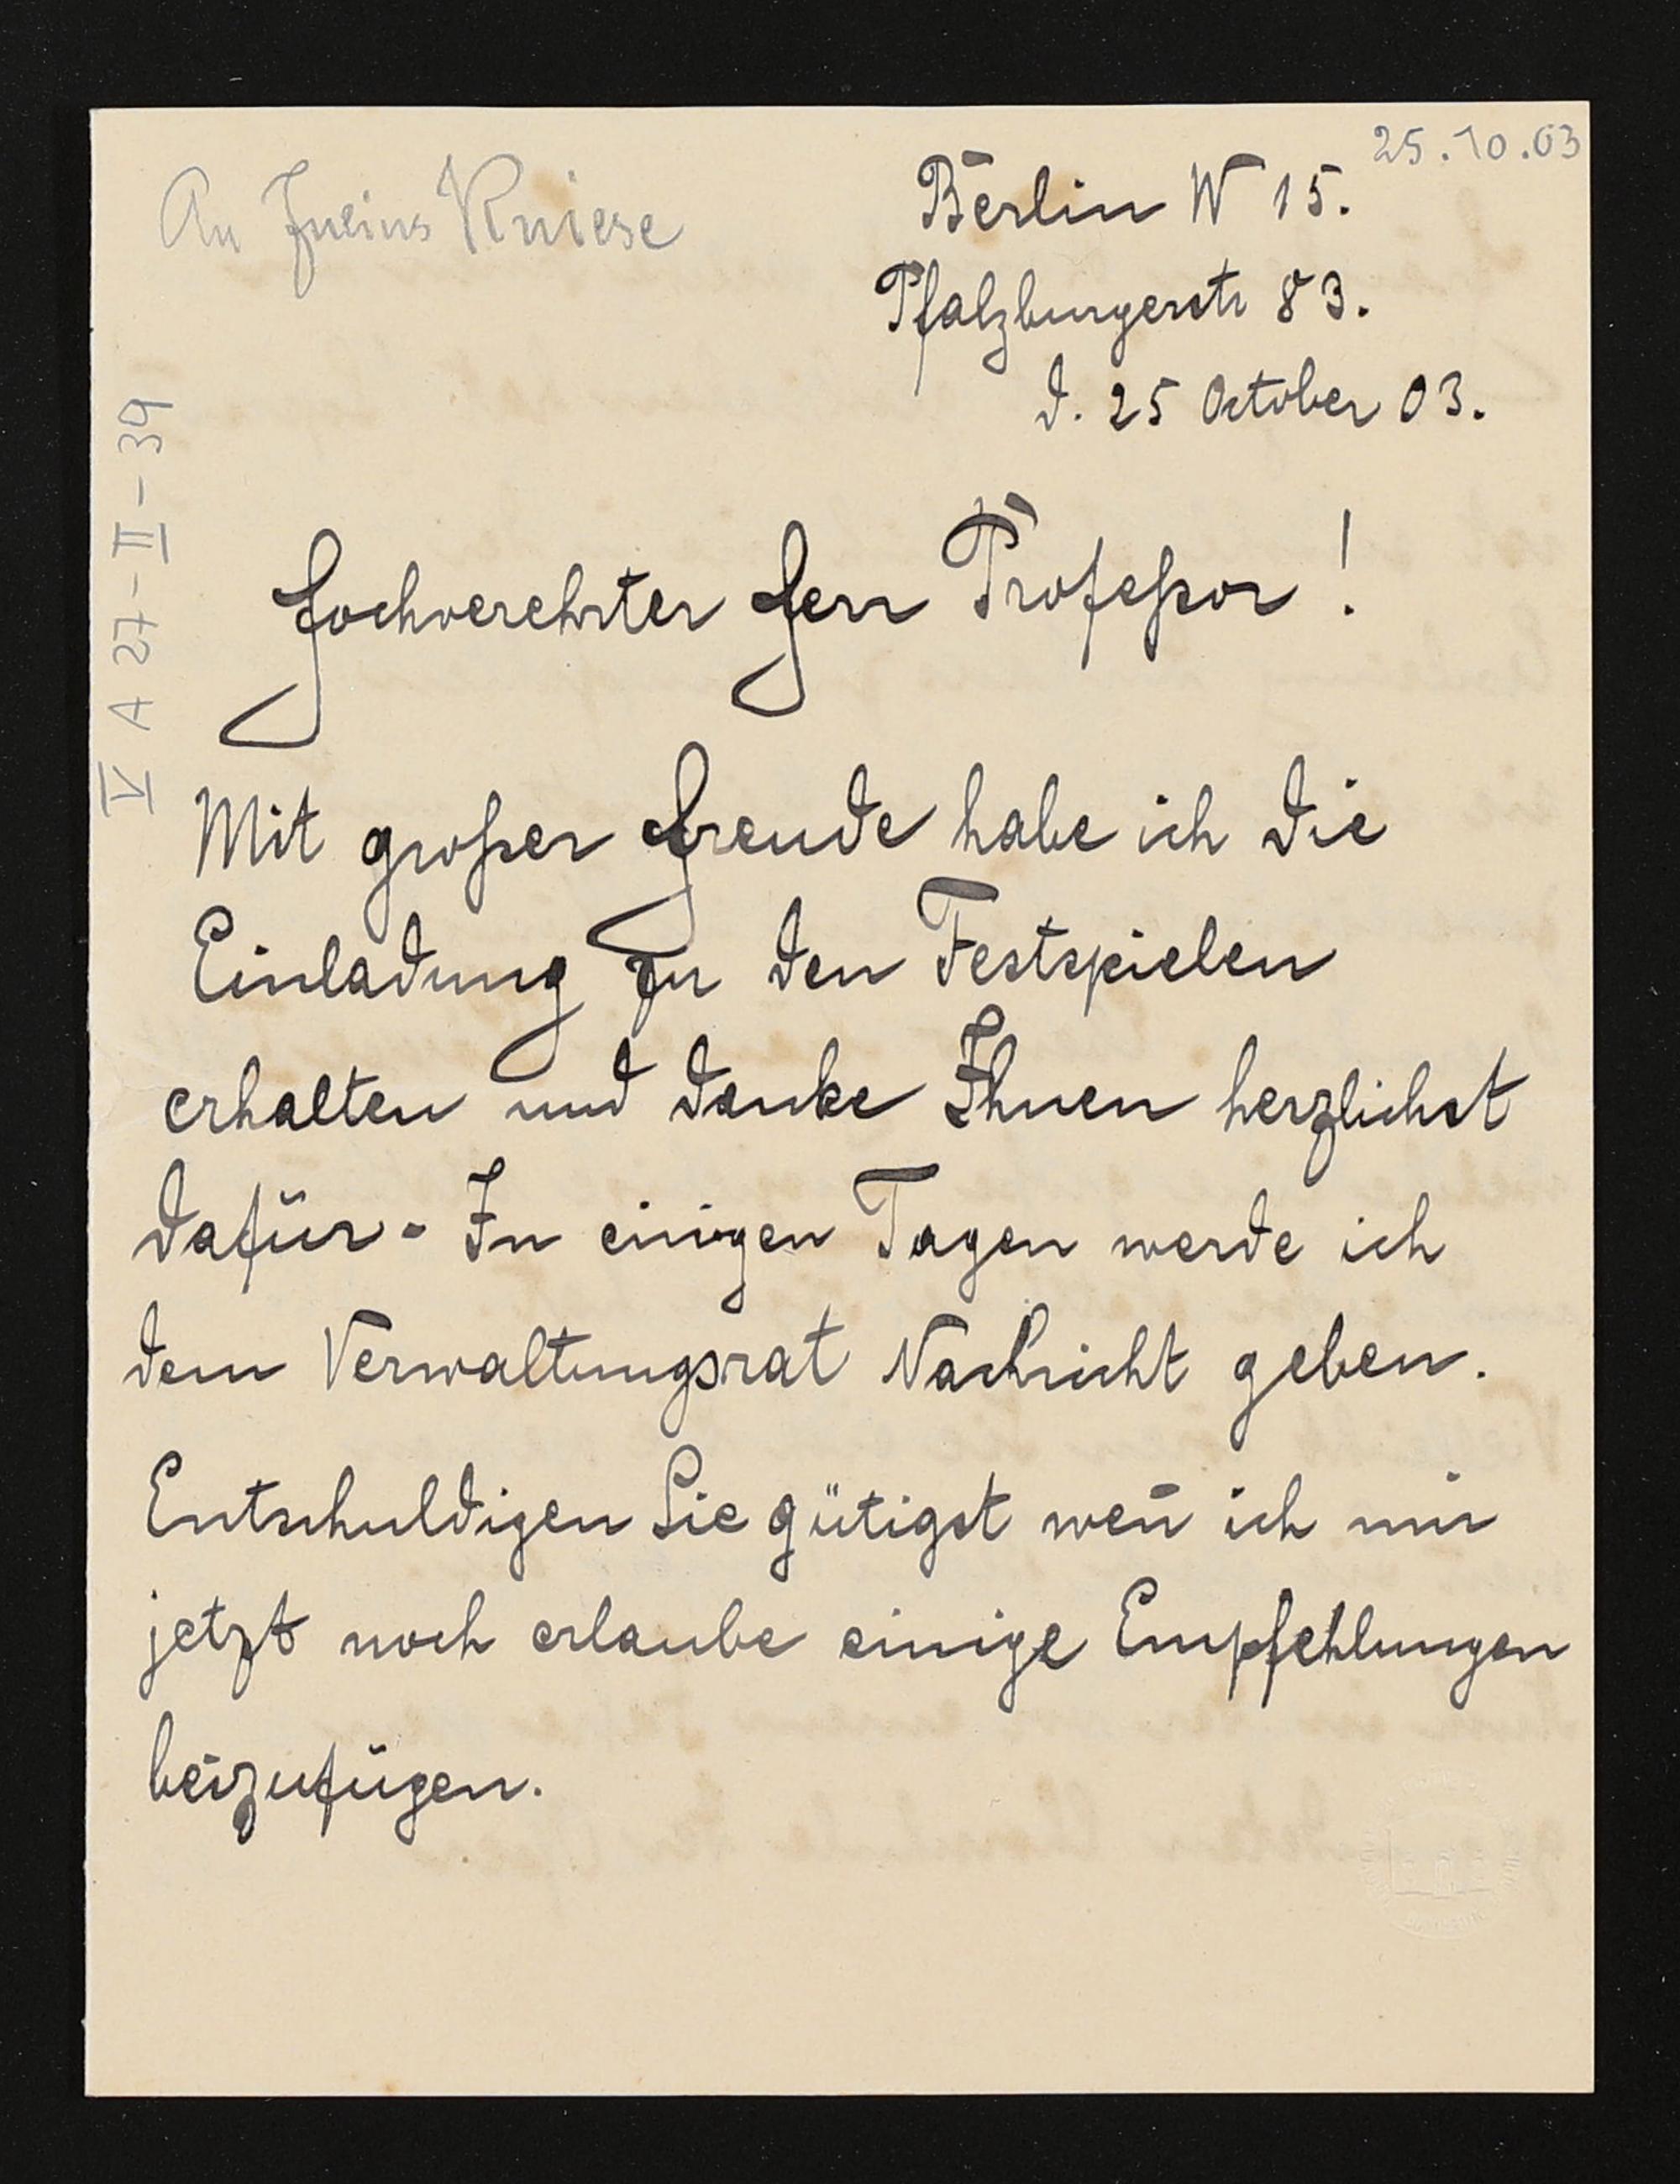 25.10.03
An Julius Kniese
Berlin W 15.
Pfalzburgerstr 83.
d. 25 October 03.
V A 27-II-39
Hochverehrter Herr Professor!
Mit großer Freude habe ich die
Einladung zu den Festspielen
erhalten und danke Ihnen herzlichst
dafür. In einigen Tagen werde ich
dem Verwaltungsrat Nachricht geben.
Entschuldigen Sie gütigst wen̄ ich mir
jetzt noch erlaube einige Empfehlungen
beizufügen.